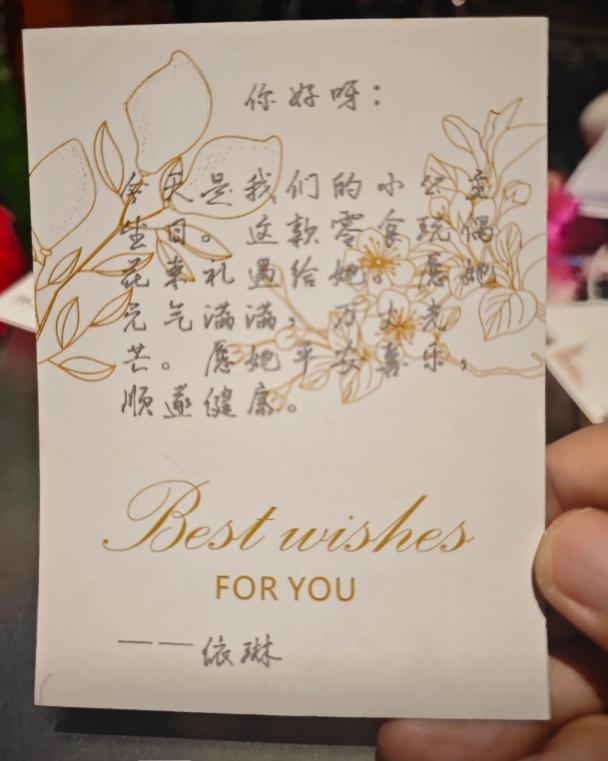 你好呀：
今天是我们的小公主
生日。这款零食玩偶
花束礼遇给她。愿她
元气满满，万丈光
芒。愿她平安喜乐，
顺遂健康。
Best wishes
FOR YOU
——依琳